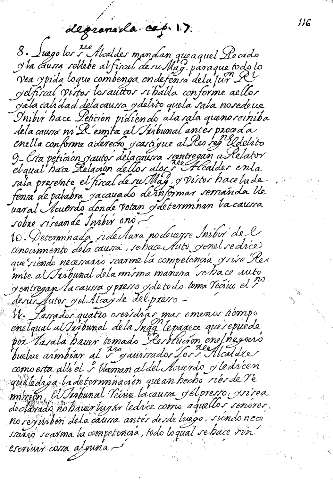 de granada. cap. 17.
116
8. Luego los Sres Alcaldes mandan que aquel Recado
y la causa se llebe al fiscal de su Magd. para que todo lo
vea y pida lo que combenga en defensa de la Jurn. Rl.
y el fiscal vistos los autos si halla conforme a ellos
y a la calidad de la causa y delito que la sala no se deve
Inibir hace Peticion pidiendo a la sala que no se iniba
de la causa ni Remita al Tribunal antes proceda
en ella conforme a derecho y castigue al Reo segun el delito
9. Esta peticion y autos de la causa se entregan a Relator
el qual hace Relacion de ellos a los Sres Alcaldes en la
sala presente el fiscal de su Magd. y vistos hace la de
fensa de palabra y acavado de informar se mandan lle
var al Acuerdo donde votan y determinan la causa
sobre si se an de Inibir o no.
10. Determinado si declaran no deverse Inibir de el
conocimiento de la causa se hace Auto, y en el se dice
que siendo necesario se arme la competencia, y si se Re
mite al Tribunal de la misma manera se hace auto
y entregan la causa y preso y de todo toma Recivo el
de sus Autos y el Alcayde del preso.
11. Passados quatro o seis dias mas o menos tiempo
en el qual al Tribunal de la Inqn. le parece que se puede
por la sala haver tomado Resolucion en el negocio
buelve a imbiar al y avisados los Sres Alcaldes
como esta alli el Sr. llaman al del Acuerdo y le dicen
qual es la determinacion que an hecho si es de Re
mision, el Tribunal Recive la causa y el preso, y si es a
declarado no haver lugar le dice como aquellos señores
no se iniben de la causa antes desde luego, siendo nece
sario se arma la competencia, todo lo qual se hace sin
escrivir cosa alguna.